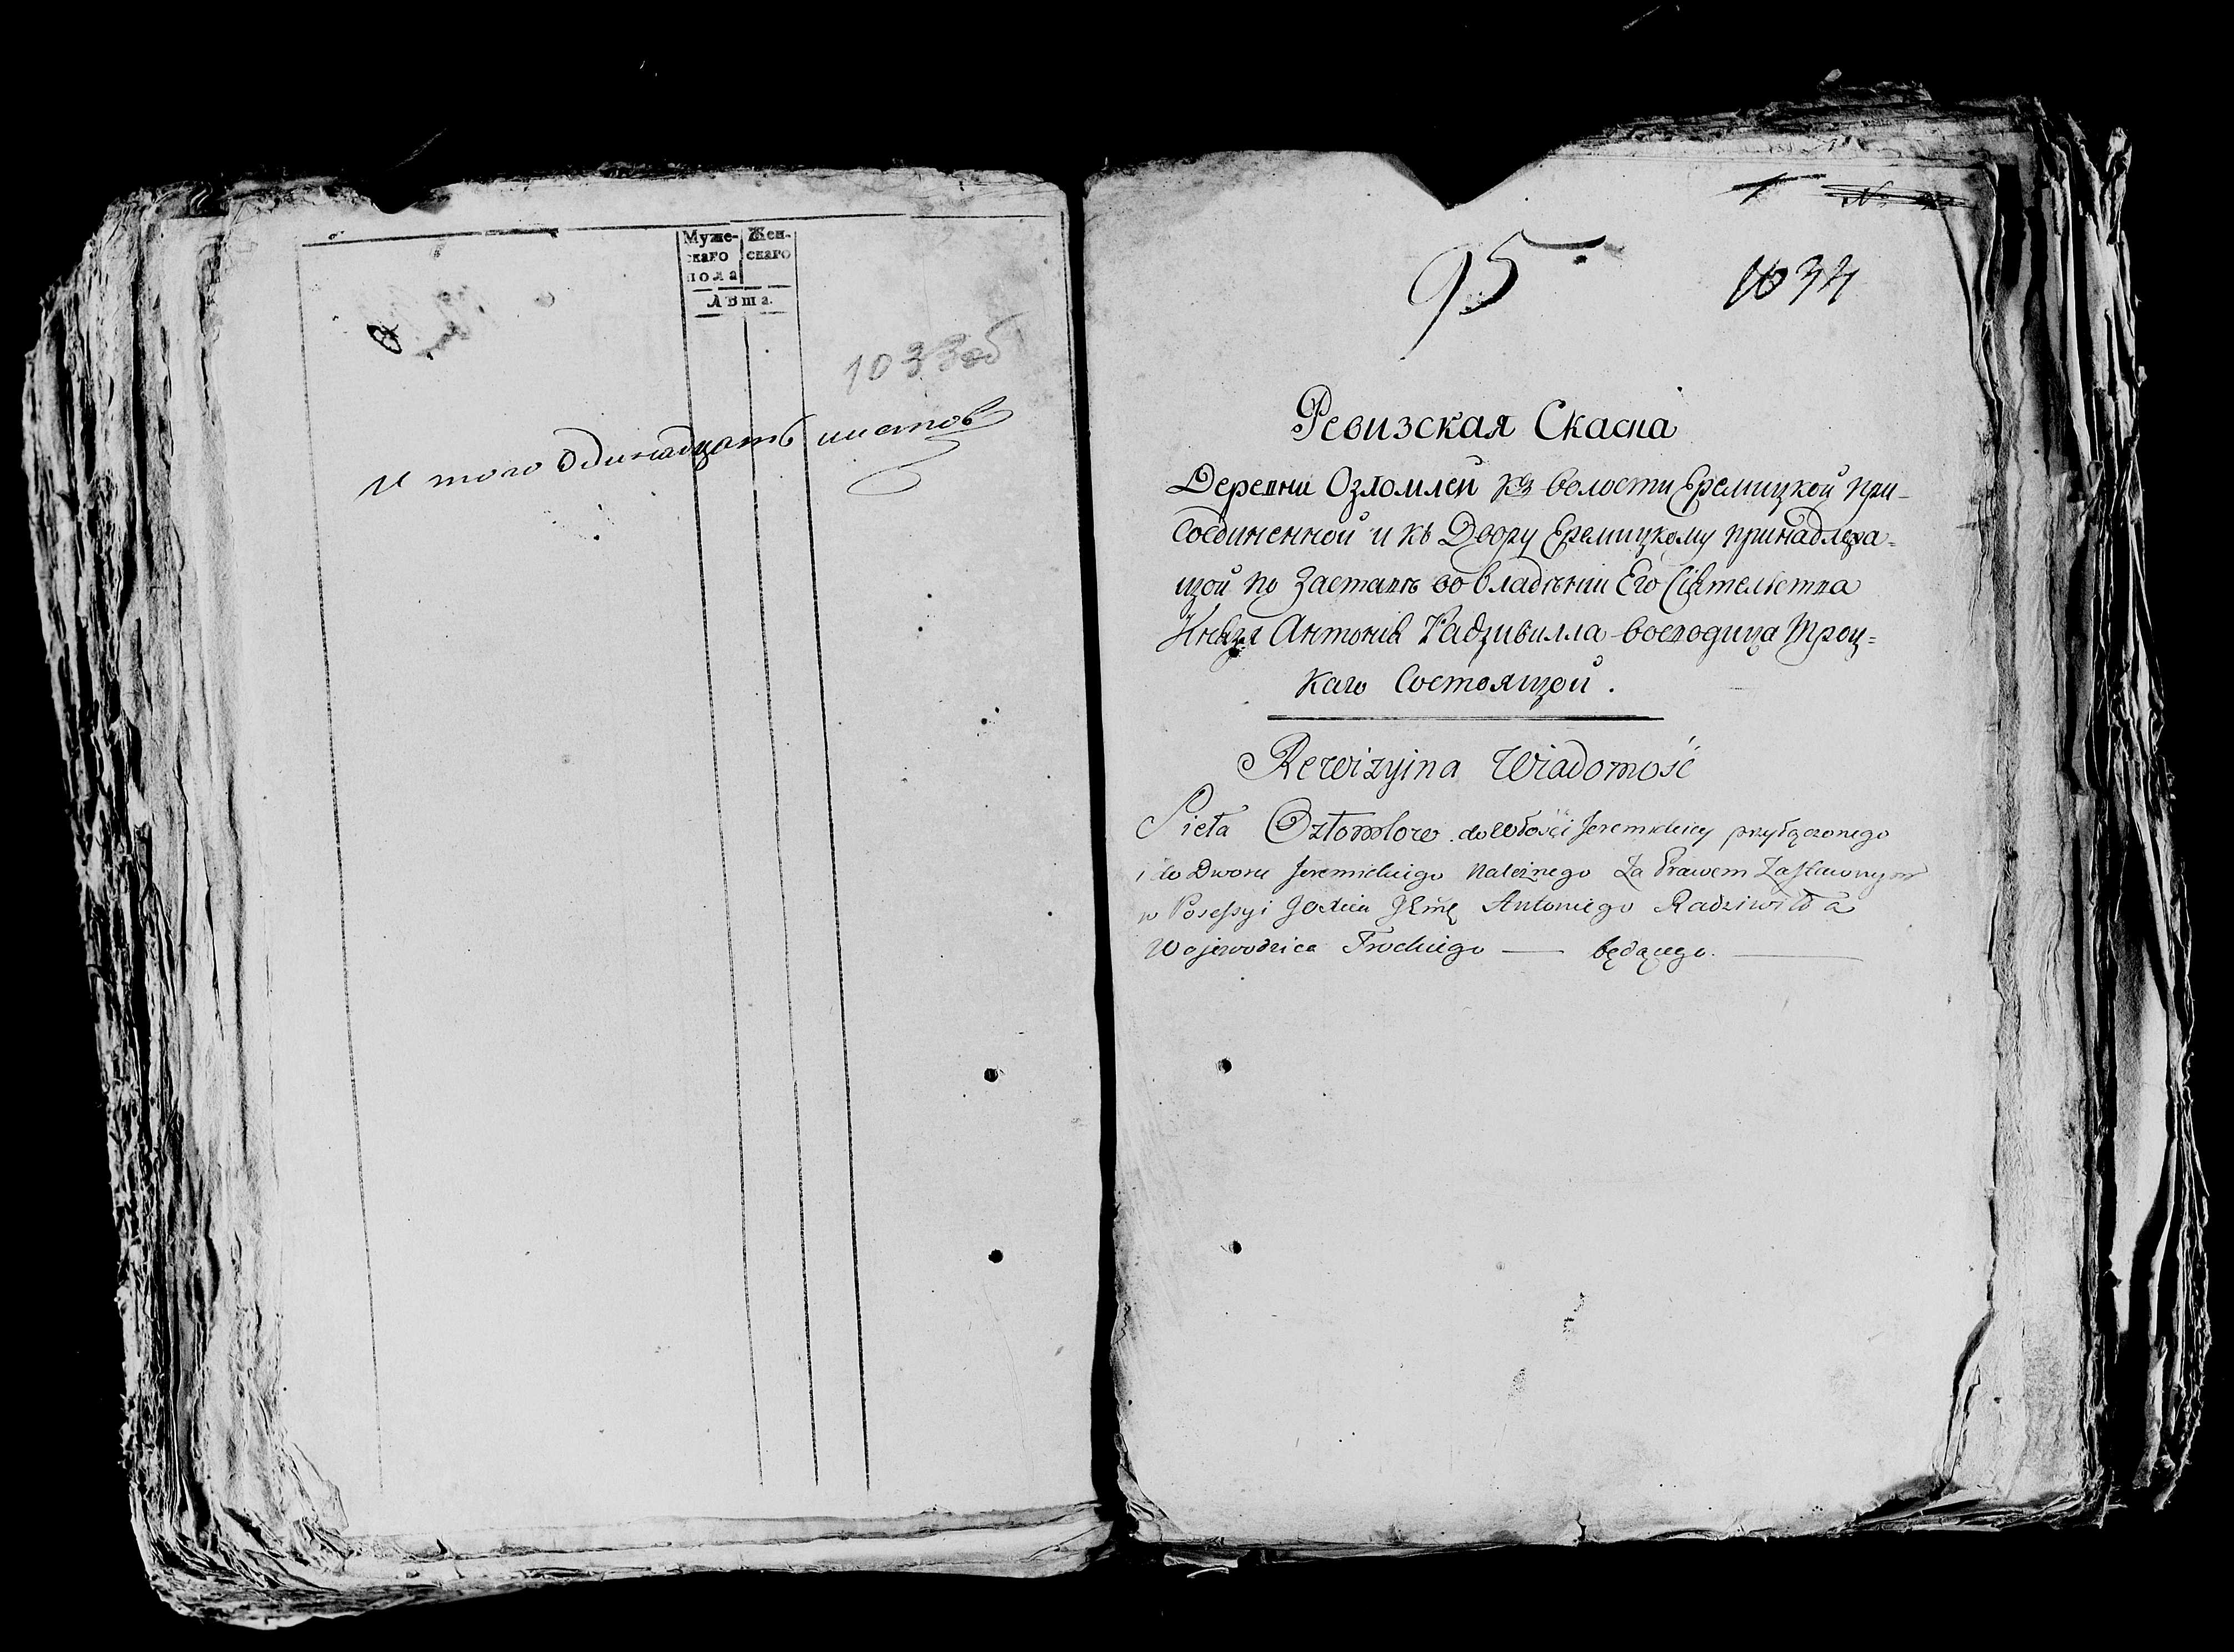 Муже-
скаго
пола
Жен-
скаго
Лѣта.
1033об
И того одинадцать листов
95
1034
Ревизская Скаска
Деревни Озломлеи къ волости Еремицкой при-
соединенной и къ Двору Еремицкому принадлежа-
щой по Заставѣ во владѣнiи Его Сiятельства
Князя Антонiя Радзивилла воеводица Троц-
каго Состоящой.
Rewizyina Wiadomość
Sieła Ozłomlow do Włości Jeremickiey przyłączonego
i do Dworu Jeremickiego należnego Za Prawem Zastawnym
w Possessyi JO Xcia JEmę Antoniego Radziwiłła
Wojewodzica Trockiego — będącego. —